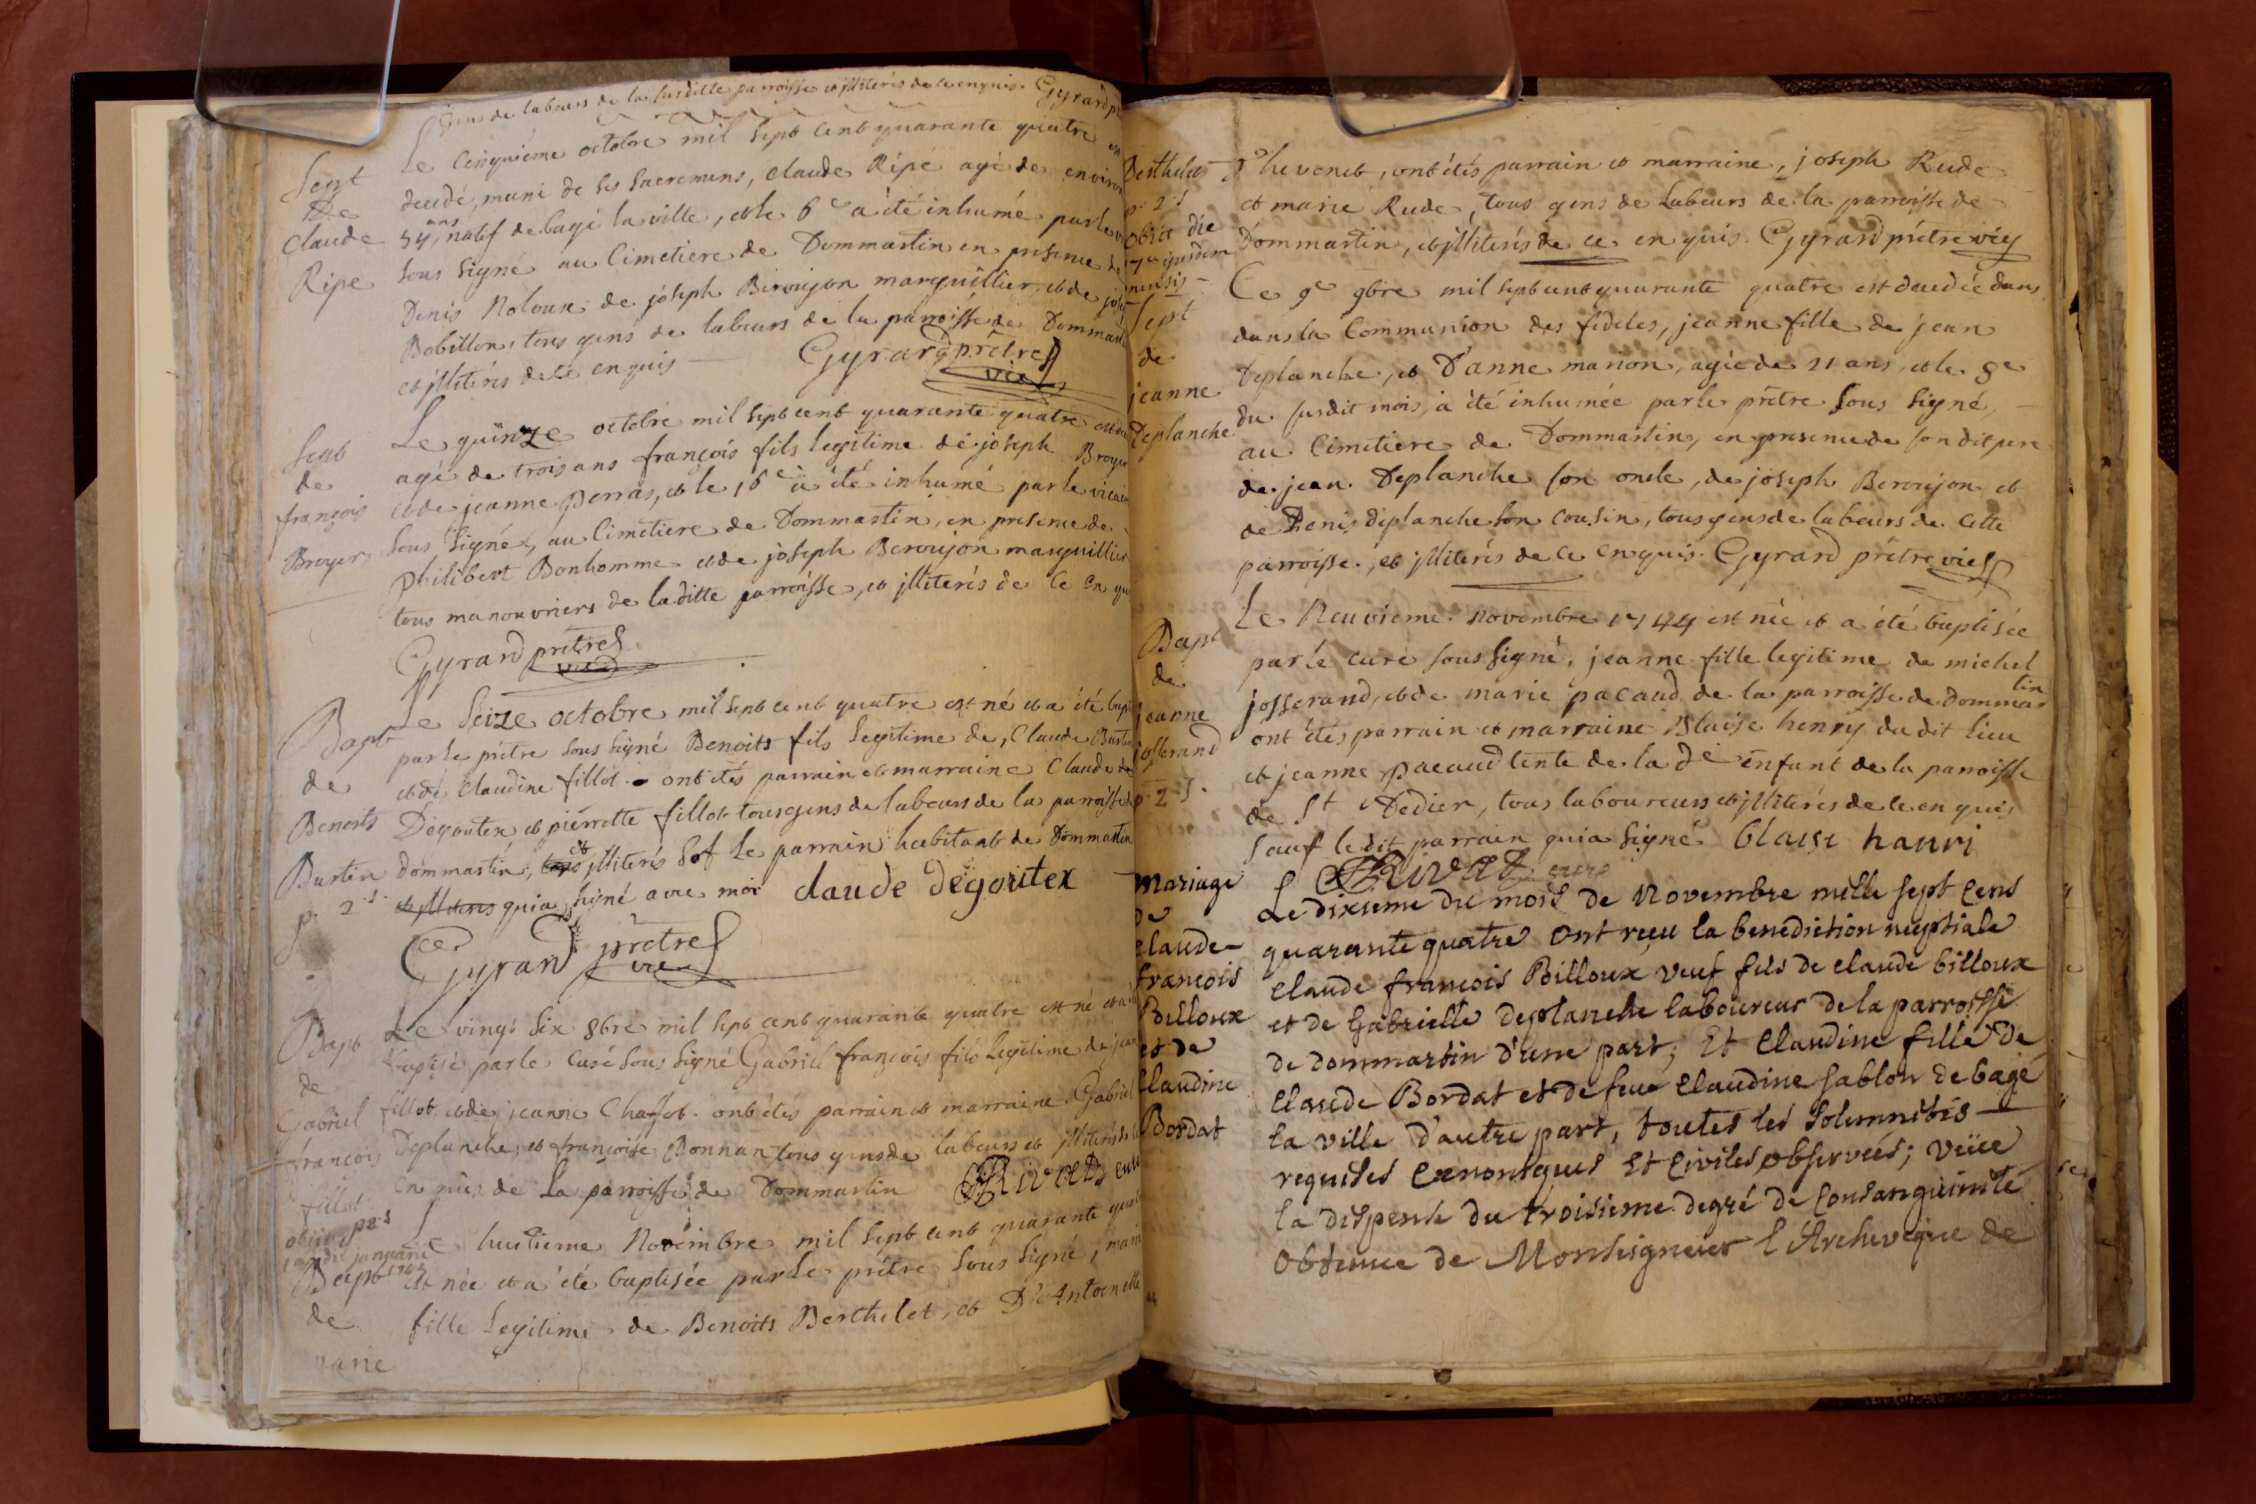 gens de labeurs de la susditte parroisse et illiterés de ce enquis. Gyrard
Sept
de
Claude
Ripe
Le cinquiéme octobre mil sept cent quarante quatre est
decedé, muni de ses sacremens, claude Ripé agé de environ
54 ans, natif de bagé la ville, et le 6e a été inhumé par le
sous signé au Cimetiere de Dommartin en presence de
Denis Noloux de joseph Beroujon marguillier, et de
Bobillon, tous gens de labeurs de la parroisse de Dommartin
et illiterés de ce enquis
Gyrard prêtre
vic
Sept
de
françois
Broyer
Le quinze octobre mil sept cent quarante quatre
agé de trois ans françois fils legitime de joseph Broyer
et de jeanne Perras, et le 16e a été inhumé par le vicaire
sous signé, au Cimetiere de Dommartin, en presence de
Philibert Bonhomme et de joseph Beroujon marguillier
tous manouvriers de laditte parroisse, et illiterés de ce en
Gyrard prêtre
vic
Bapt
de
Benoits
Burtin
p. 2 s.
Le Seize octobre mil sept cent quatre est né et a été
par le prêtre sous signé Benoits fils legitime de, Claude
et de Claudine fillot. ont étés parrain et marraine Claude
Degoutex et pierrette fillot tous gens de labeurs de la parroisse
dommartin, et illiterés Sof le parrain habitant de Dommartin
qui a signé avec moi claude degoutex
Gyrard prêtre
vic
Bapt
de
Gabriel
françois
fillot
Le vingt six 8bre mil sept cent quarante quatre est né et a
baptisé par le curé sous signé Gabriel françois fils legitime de
fillot et de jeanne Chassot. ont étés parrain et marraine Gabriel
Deplanche, et françoise Bonnan tous gens de labeurs et illiterés
en quis de La parroisse de Dommartin Rivat curé
Bapt
de
marie
Le huitieme Novembre mil sept cent quarante
est née et a été baptisée par le prêtre sous signé,
fille Legitime de Benoits Berthelet, et D'Antoinette
Berthelet
p. 2 s
obiit die
ejusdem
mensis
Thevenet, ont étés parrain et marraine, joseph Rude
et marie Rude, tous gens de Labeurs de la parroisse de
Dommartin, et illiterés de ce en quis. Gyrard prêtre vic
Sept
de
jeanne
Deplanche
Le 9e 9bre mil sept cent quarante quatre est decedée dans
dans la Communion des fideles, jeanne fille de jean
deplanche, et D'anne marion, agée de 21 ans, et le 9e
du susdit mois, a été inhumée par le prêtre sous signé
au Cimetiere de Dommartin, en presence de son dit pere
de jean Deplanche son oncle, de joseph Beroujon et
de Denis deplanche son cousin, tous gens de labeurs de cette
parroisse, et illiterés de ce enquis. Gyrard prêtre vic
Bapt
de
jeanne
josserand
p. 2 s.
Le Neuvieme Novembre 1744 est née et a été baptisée
par le curé sous signé, jeanne fille legitime de michel
josserand, et de marie pacaud de la parroisse de Dommartin
ont étés parrain et marraine Blaise henry du dit Lieu
et jeanne pacaud tente de la de enfant de la parroisse
de St Dedier, tous laboureurs et illiterés de ce en quis
Sauf ledit parrain qui a signé blaise hanri
Rivat curé
Mariage
de
claude
francois
Billoux
et de
Claudine
Bordat
Le dixieme du mois de Novembre mille sept cens
quarante quatre ont reçu la benediction nuptiale
claude francois Billoux veuf fils de claude billoux
et de Gabrielle deplanche laboureur de la parroisse
de dommartin d'une part; Et Claudine fille de
claude Bordat et de feue claudine sablon de bagé
la ville d'autre part, toutes les solemnités
requises canoniques et civiles observées; veüe
la dispense du troisieme degré de consanguinité
obtenue de Monseigneur l'Archeveque de